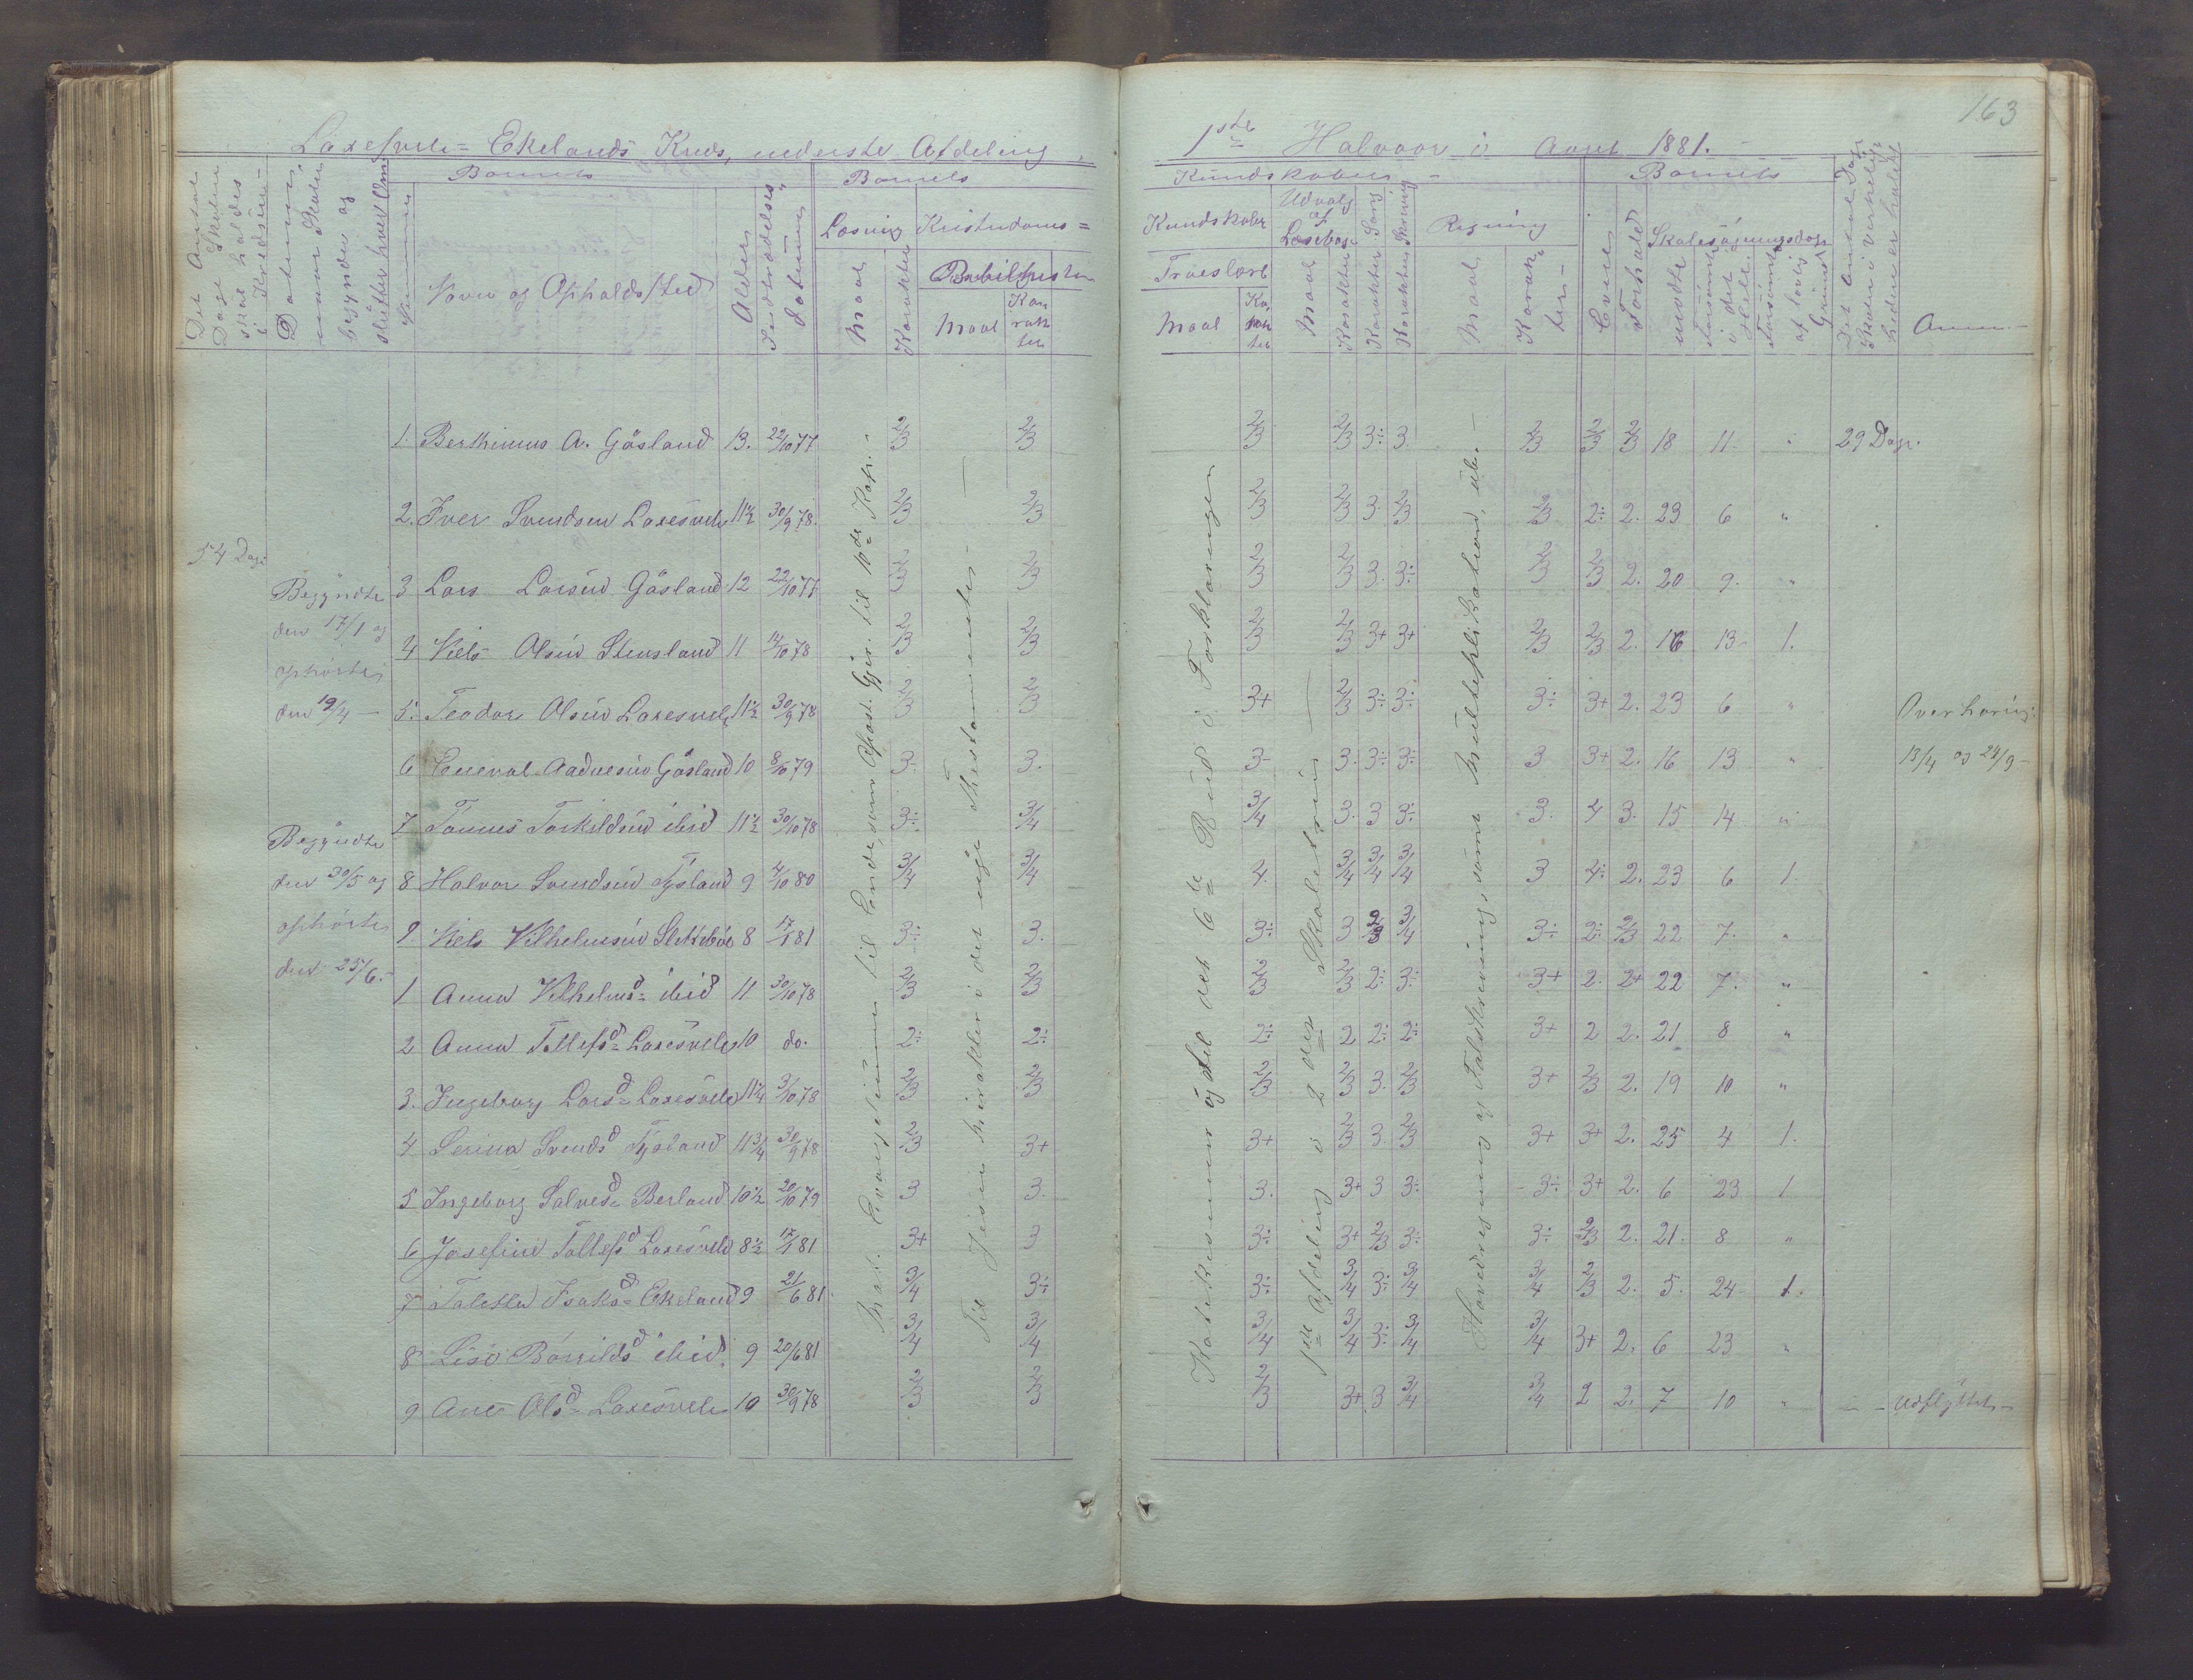 163
Laxesvele= Ekelands Kreds, nederste Afdeling,
1ste Halvaar i Aaret 1881.
Det Antal
Dage Skolen
skal holdes
i Kredsen
Datumer
naar Skolen
begyndte og
slutter hver Om
Nummer
Barnets
Navn og Opholdssted
Alder
Indtrædelses
datum
Barnets
Læsning
Maal
Karakter
Kristendoms=
Bibelhistorie
Maal
Karakter
Kundskaber
Kundskaber
Troeslære
Maal
Karakter
Udvalg
af
Læsebog
Maal
Karakter
Sang
Karakter
Skrivning
Karakter
Regning
Maal
Karakter
Barnets
Evner
Forhold
Skolesøgningsdage
mødte
Forsømte
i det
Hele
Forsømte
af lovlig
Grund
Det Antal Dage
Skolen i virkelig-
heden er holdt
Anm.
54 Dage
Begyndte
den 17/1 og
ophørte
den 12/4
Begyndte
den 30/5 og
ophørte
den 25/6.
1. Berthinius A. Gåsland 13. 22/10 77 2/3 2/3 2/3 2/3 3÷ 3 2/3 2/3 2/3 18 11 29 Dage.
2. Iver Svendsen Laxesvele 11½ 30/9 78. 2/3 2/3 2/3 2/3 3. 2/3 2/3 2÷ 2. 23 6 "
3 Lars Larsen Gåsland 12 22/10 77 2/3 2/3 2/3 2/3 3. 3÷ 2/3 2/3 2. 20 9. "
4 Niels Olsen Stensland 11 14/10 78 2/3 2/3 2/3 2/3 3+ 3+ 2/3 2/3 2. 16 13 1.
5. Teodor Olsen Laxesvele 11½ 30/9 78 2/3 2/3 3+ 2/3 3÷ 3÷ 3÷ 3+ 2. 23 6 " Overhøring
6 Eneval Aadnesen Gåsland 10 8/10 79 3. 3. 3- 3. 3÷ 3÷ 3 3+ 2. 16 13 " 13/4 og 24/9
7 Tønnes Torkildsen ibid 11½ 30/10 78 3÷ 3/4 3/4 3. 3 3÷ 3. 4 3. 15 14 "
8 Halvor Svendsen Tysland 9 4/10 80 3/4 3/4 4. 3/4 3/4 3/4 3 4÷ 2. 23 6 1.
9. Niels Vilhelmsen Slettebøe 8 17/1 81 3÷ 3. 3÷ 3 2/3 3/4 3÷ 2÷ 2/3 22 7. "
1 Anna Vilhelmsd= ibid 11 30/10 78 2/3 2/3 2/3 2/3 2÷ 3÷ 3+ 2. 2+ 22 7. "
2 Anna Tollefsd= Laxesvele 10 do. 2÷ 2÷ 2÷ 2 2÷ 2÷ 3+ 2 2. 21 8 "
3. Ingeborg Larsd= Laxesvele 11¼ 3/10 78 2/3 2/3 2/3 2/3 3. 2/3 3+ 2/3 2. 19 10 "
4 Serina Svendsd Tysland 11¾ 30/9 78 2/3 3+ 3+ 2/3 3. 2/3 3+ 3+ 2. 25 4 1.
5 Ingeborg Salvesd= Berland 10½ 20/10 79 3 3. 3. 3+ 3 3÷ 3÷ 3+ 2. 6 23 1
6 Josefine Tollefsd Laxesvele 8½ 17/1 81 3+ 3 3÷ 3+ 2/3 3÷ 3÷ 2/3 2. 21. 8 "
7 Taletta Isaksd= Ekeland 9 21/6 81 3/4 3÷ 3÷ 3/4 3÷ 3/4 3/4 2/3 2. 5. 24 1.
8 Lise Bårildsd ibid. 9 20/6 81 3/4 3/4 3/4 3/4 3÷ 3/4 3/4 3+ 2. 6 23 "
9 Ane Olsd= Laxesvele 10 30/9 78 2/3 2/3 2/3 3+ 3 3/4 3/4 2 2. 7 10 " Udflyttet
Mat. Evangelium til Ende, samt Apost. Gjer. til 10de Kap.
Til Jesu Mirakler i det nye Testamente
Katekismen og til det 6te Bud i Forklaringen
1ste Afdeling i 2den Skoletrin
Hovedregning og Talskrivning samt Multiplikation, ub.